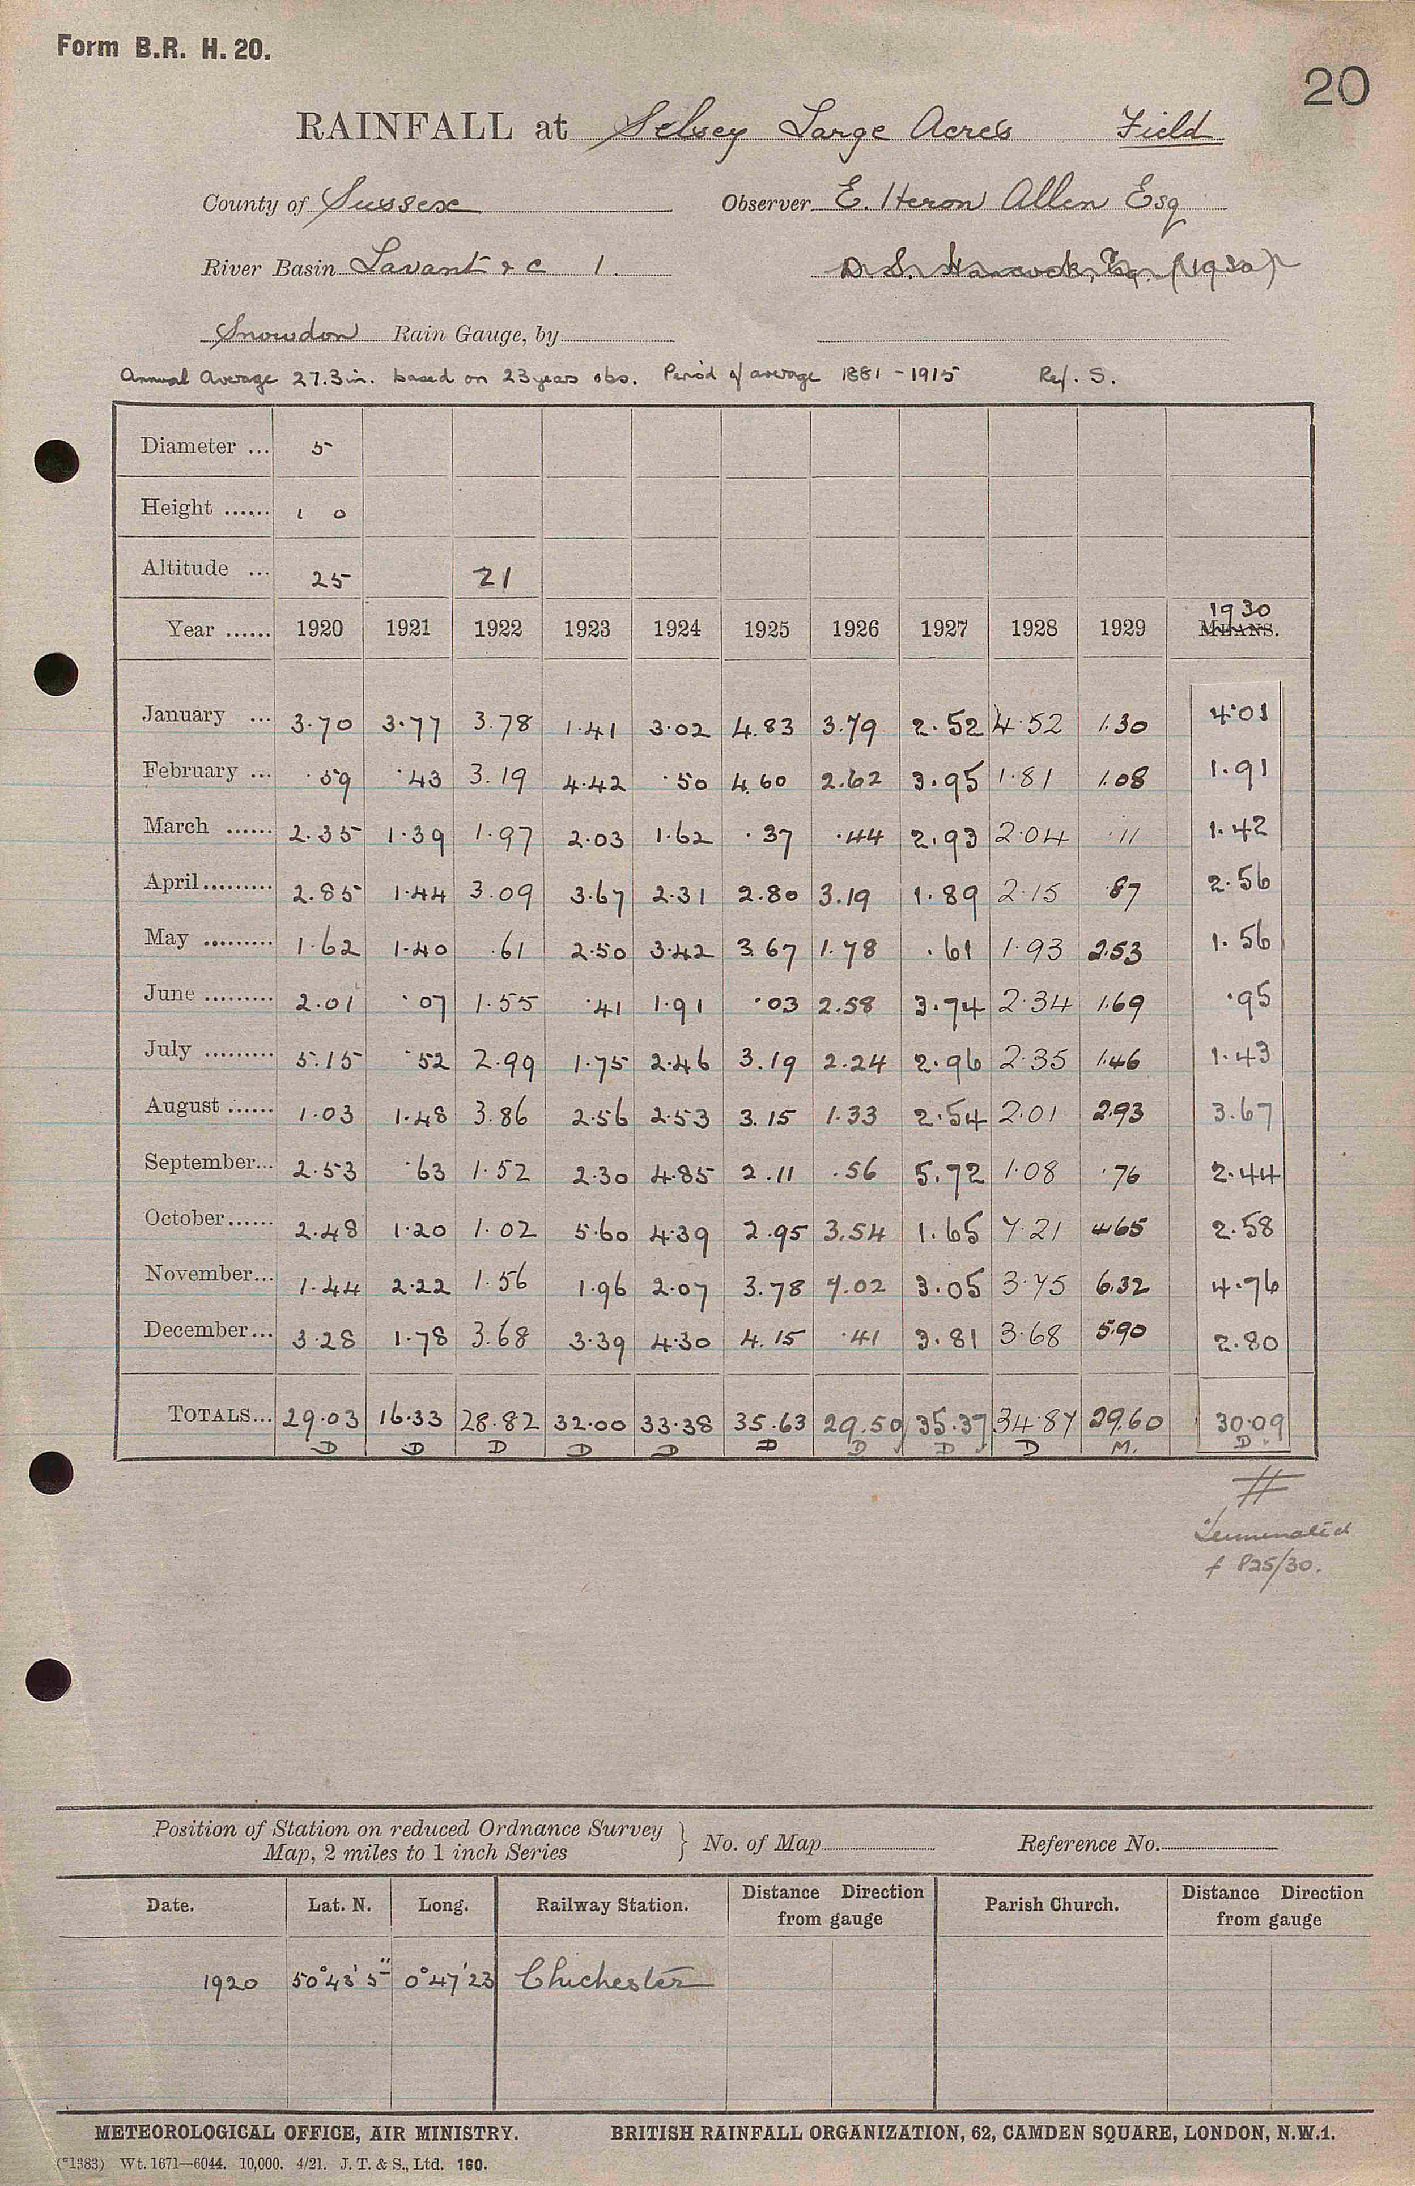 Form B.R. H. 20.
20
RAINFALL at Selsey Large Acres Field
County of Sussex Observer E. Heron Allen Esq
River Basin Lavant & C 1. D. S. Hancock, Esq. (1930)
Snowdon Rain Gauge, by
Annual Average 27.3 in. based on 23 years obs. Period of average 1881 - 1915 Ref. S.
Diameter ... 5
Height ...... 1 0
Altitude ... 25 21
1930
Year ...... 1920 1921 1922 1923 1924 1925 1926 1927 1928 1929 MEANS.
January ... 3.70 3.77 3.78 1.41 3.02 4.83 3.79 2.52 4.52 1.30 4.01
February ... .59 .43 3.19 4.42 .50 4.60 2.62 3.95 1.81 1.08 1.91
March ...... 2.35 1.39 1.97 2.03 1.62 .37 .44 2.93 2.04 .11 1.42
April......... 2.85 1.44 3.09 3.67 2.31 2.80 3.19 1.89 2.15 .87 2.56
May ......... 1.62 1.40 .61 2.50 3.42 3.67 1.78 .61 1.93 2.53 1.56
June ......... 2.01 .07 1.55 .41 1.91 .03 2.58 3.74 2.34 1.69 .95
July ......... 5.15 .52 2.99 1.75 2.46 3.19 2.24 2.96 2.35 1.46 1.43
August ...... 1.03 1.48 3.86 2.56 2.53 3.15 1.33 2.54 2.01 2.93 3.67
September... 2.53 .63 1.52 2.30 4.85 2.11 .56 5.72 1.08 .76 2.44
October...... 2.48 1.20 1.02 5.60 4.39 2.95 3.54 1.65 7.21 4.65 2.58
November... 1.44 2.22 1.56 1.96 2.07 3.78 7.02 3.05 3.75 6.32 4.76
December... 3.28 1.78 3.68 3.39 4.30 4.15 .41 3.81 3.68 5.90 2.80
TOTALS... 29.03 16.33 28.82 32.00 33.38 35.63 29.50 35.37 34.87 29.60 30.09
D D D D D D D D D M. D.
Terminated
f 825/30.
Position of Station on reduced Ordnance Survey
Map, 2 miles to 1 inch Series } No. of Map Reference No.
Date. Lat. N. Long. Railway Station. Distance Direction from gauge Parish Church. Distance Direction from gauge
1920 50°43'5" 0°47'23 Chichester
METEOROLOGICAL OFFICE, AIR MINISTRY. BRITISH RAINFALL ORGANIZATION, 62, CAMDEN SQUARE, LONDON, N.W.1.
(*1383) Wt. 1671—6044. 10,000. 4/21. J. T. & S., Ltd. 160.